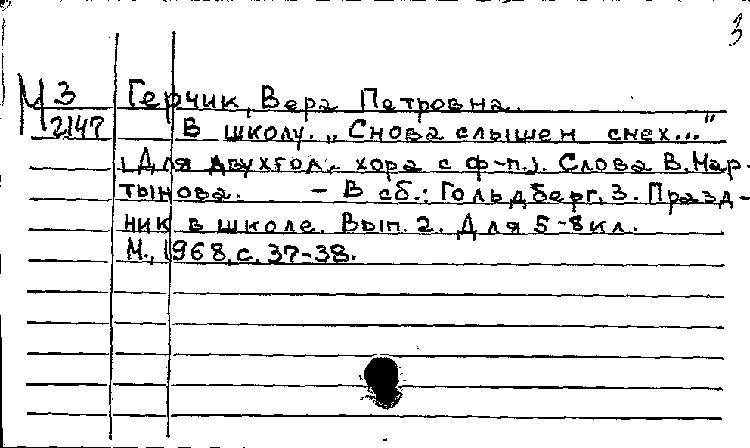 3
М 3 Герчик, Вера Петровна.
2147 В школу. „Снова слышен смех..."
[Для двухгол. хора с ф-п.]. Слова В. Мар-
тынова. - В сб.: Гольдберг, З. Празд-
ник в школе. Вып. 2. Для 5-8 кл.
М., 1968, с. 37-38.